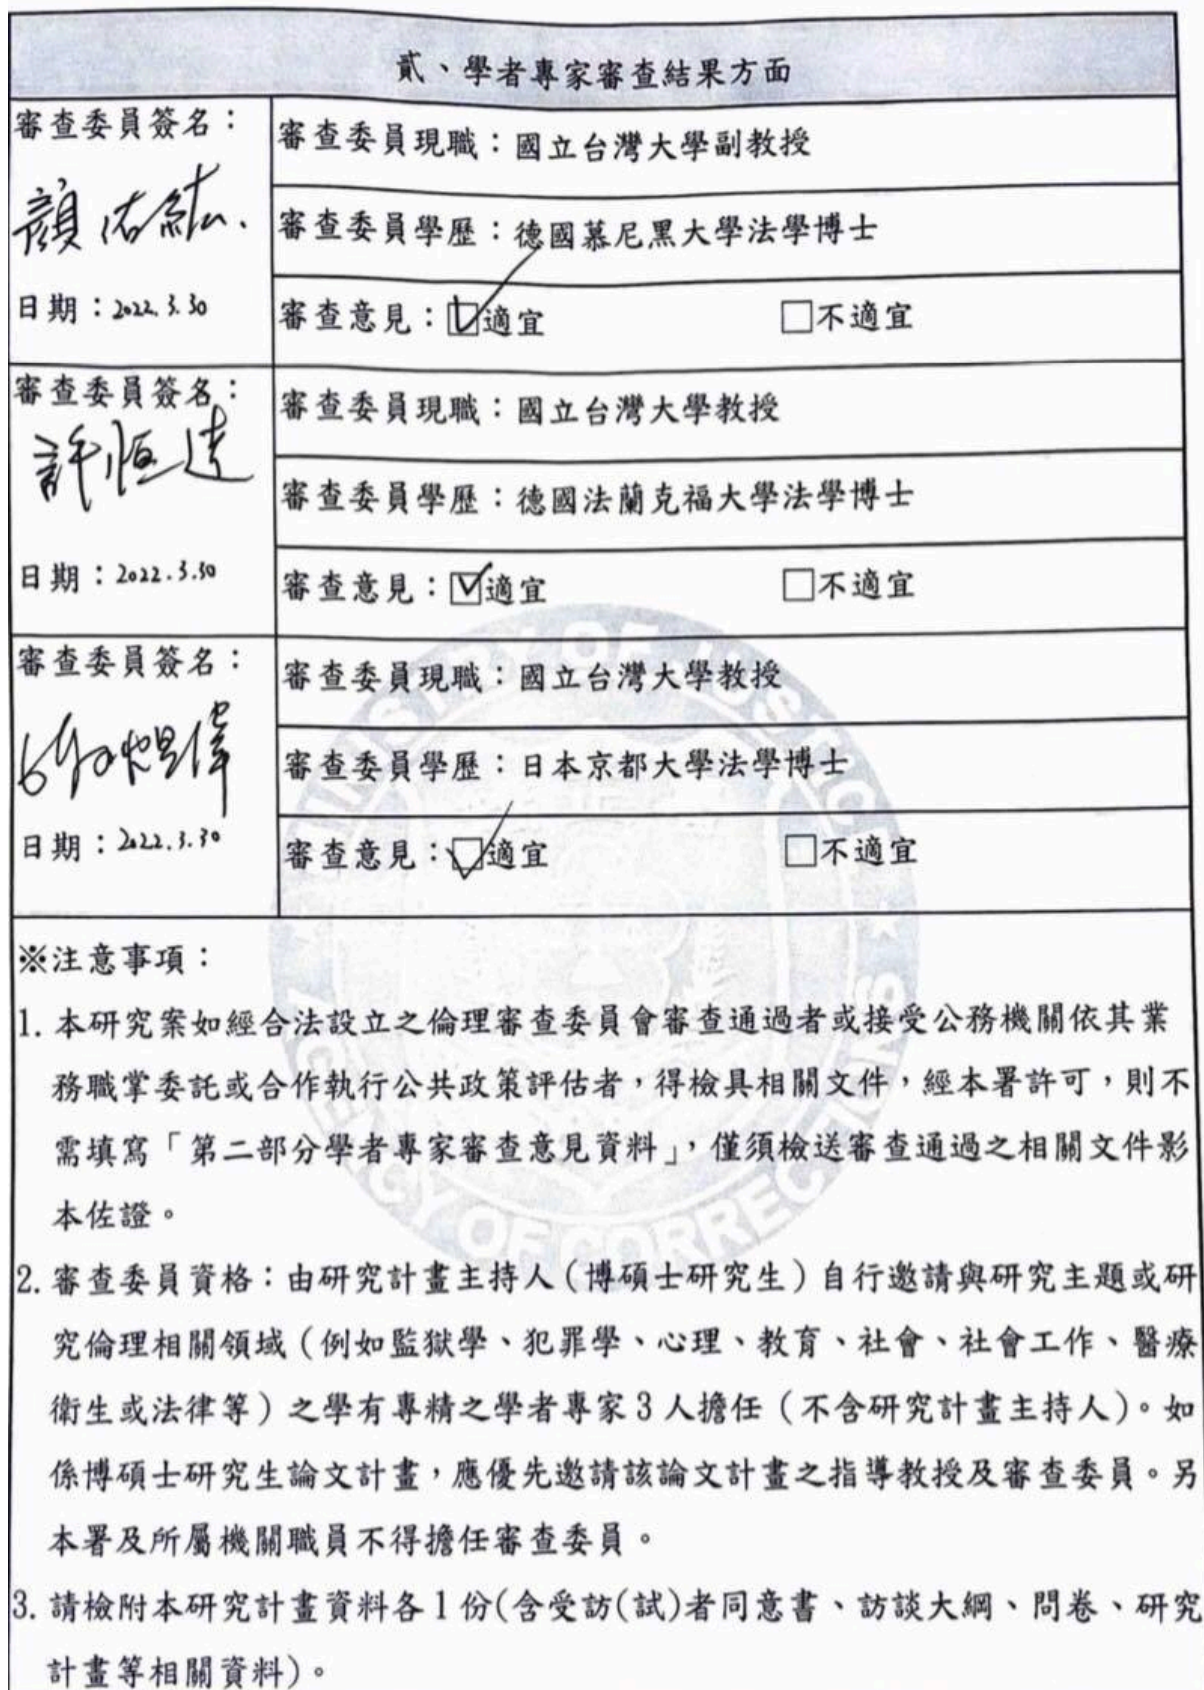 貳、學者專家審查結果方面
審查委員簽名：
顏佑紘.
日期：2022.3.30
審查委員現職：國立台灣大學副教授
審查委員學歷：德國慕尼黑大學法學博士
審查意見：☑適宜 □不適宜
審查委員簽名：
許恒達
日期：2022.3.30
審查委員現職：國立台灣大學教授
審查委員學歷：德國法蘭克福大學法學博士
審查意見：☑適宜 □不適宜
審查委員簽名：
謝煜偉
日期：2022.3.30
審查委員現職：國立台灣大學教授
審查委員學歷：日本京都大學法學博士
審查意見：☑適宜 □不適宜
※注意事項：
1. 本研究案如經合法設立之倫理審查委員會審查通過者或接受公務機關依其業
務職掌委託或合作執行公共政策評估者，得檢具相關文件，經本署許可，則不
需填寫「第二部分學者專家審查意見資料」，僅須檢送審查通過之相關文件影
本佐證。
2. 審查委員資格：由研究計畫主持人（博碩士研究生）自行邀請與研究主題或研
究倫理相關領域（例如監獄學、犯罪學、心理、教育、社會、社會工作、醫療
衛生或法律等）之學有專精之學者專家 3 人擔任（不含研究計畫主持人）。如
係博碩士研究生論文計畫，應優先邀請該論文計畫之指導教授及審查委員。另
本署及所屬機關職員不得擔任審查委員。
3. 請檢附本研究計畫資料各 1 份(含受訪(試)者同意書、訪談大綱、問卷、研究
計畫等相關資料)。
MINISTRY OF JUSTICE
AGENCY OF CORRECTIONS